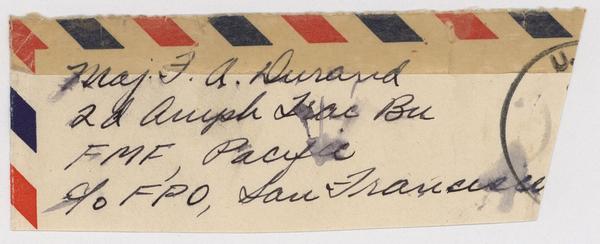 Maj. F. A. Durand
2d Amph Trac Bn
FMF, Pacific
c/o FPO, San Francisco
U.